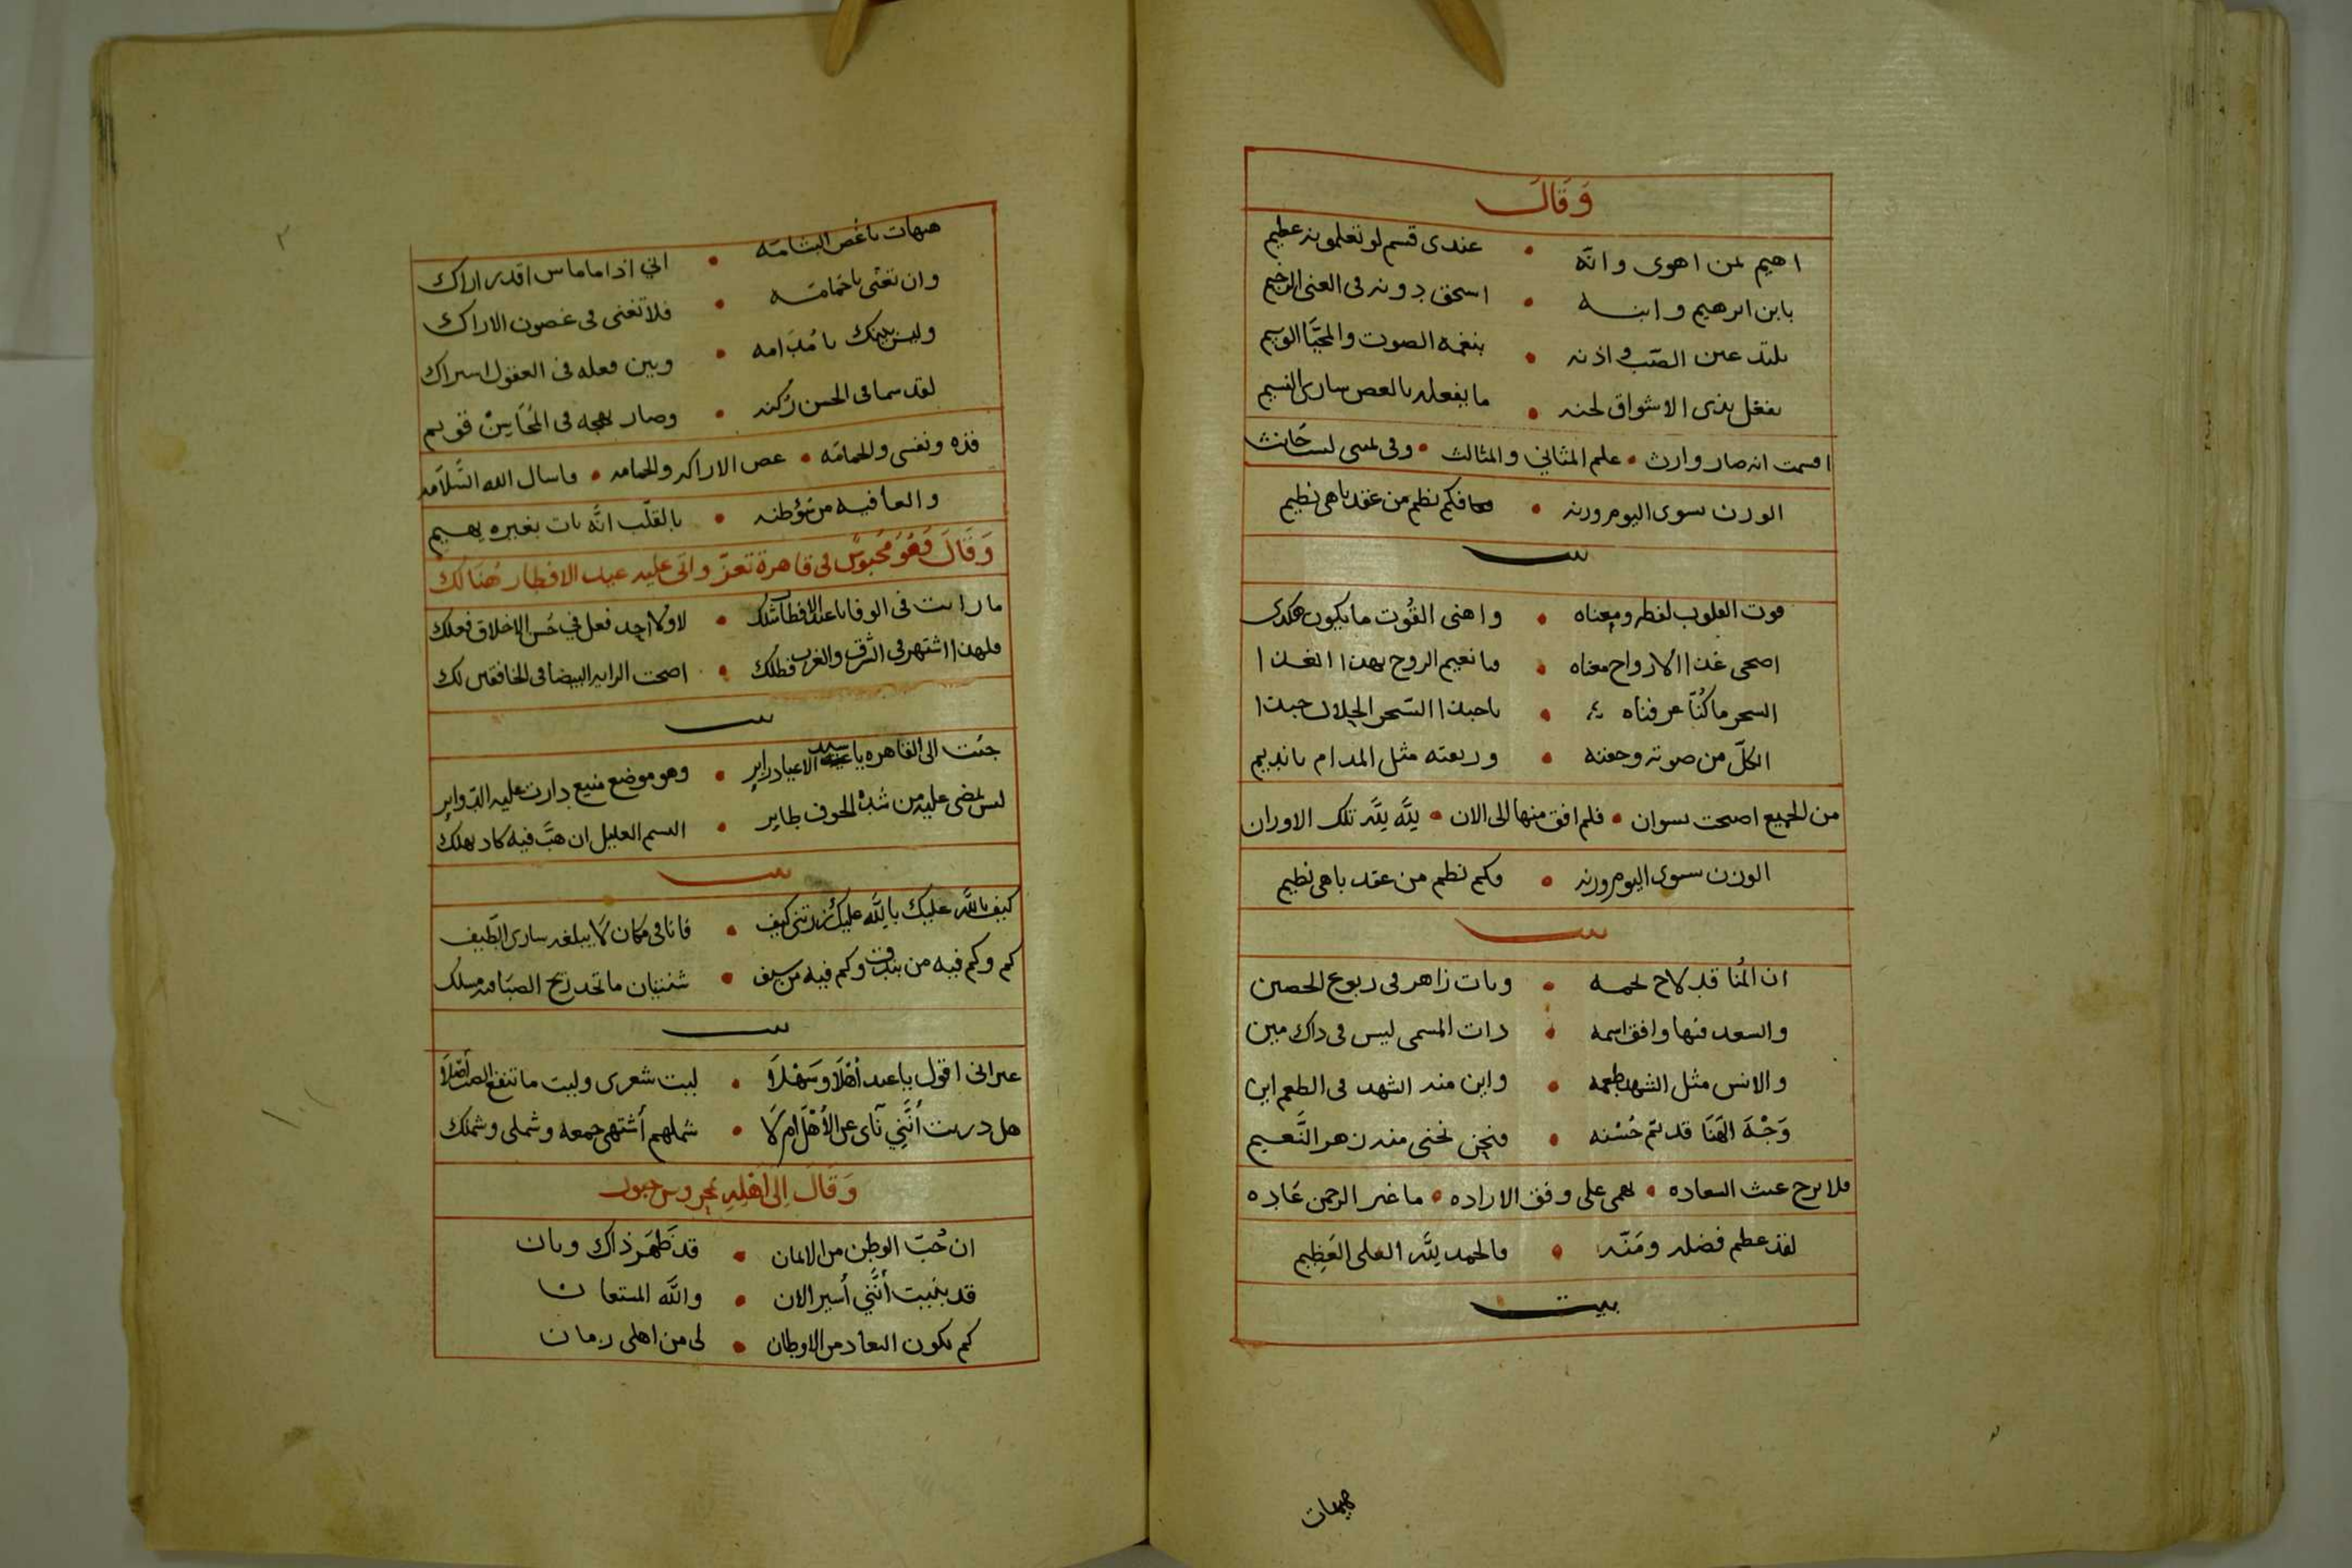 وَقَالَ
اهيم بمن اهوى وانّه • عندى قسم لو تعلمونه عظيم
بابن ابرهيم وابنه • اسحق دونه فى الغنى الرخيم
يلتذ عين الصّب واذنه • بنغمه الصوت والمحيّا الوسيم
يفعل بذى الاشواق لحنه • ما يفعله بالغصن سارى النسيم
اقسمت انه صار وارث • علم المثاني والمثالث • وفى يمينى لست حَانث
الوزن يسوى اليوم وزنه • فكم نظم من عقد باهى نظيم
بيت
قوت القلوب لفظه ومعناه • واهنى القُوت ما يكون هكذى
اضحى غذا الارواح مغناه • ما نعيم الروح بهذا الغذا
السحر ما كُنّا عرفناه • يا حبذا السّحر الحلال حبذا
الكلّ من صوته وجفنه • وريقته مثل المدام يا نديم
من الجميع اصبحت نسوان • فلم افق منها الى الان • للّه للّه تلك الاوزان
الوزن يسوى اليوم وزنه • وكم نظم من عقد باهى نظيم
بيت
ان الهُنا قد لاح نجمه • وبات زاهر فى ربوع الحصين
والسعد فيها وافق اسمه • ذات المسمى ليس فى ذاك مين
والانس مثل الشهد طعمه • واين منه الشهد فى الطعم اين
وَجْهَ الهَنَا قد تمّ حُسْنه • فنحن نجنى منه زهر النَّعيم
فلا برح غيث السعاده • يهمى على وفق الاراده • ما غير الرحمن عَاده
لقد عظم فضله ومَنّه • فالحمد للّه العلى العَظِيم
بيت
هيهات
هيهات يا غصن البشامَه • اني اذا ما ماس اقدر اراك
وان تغنّى يا حَمَامَه • فلا تغنى فى غصون الاراك
وليس بينك يا مُدَامه • وبين فعله فى العقول اشراك
لقد سما فى الحسن رُكنه • وصار نهجه فى المُحَاسِنْ قويم
فذه ونفسى والحمامَه • غصن الاراكه والحمامه • واسال الله السَّلامَه
والعافيه من تؤطنه • بالقلب انَّه بات بغيره يهيم
وَقَالَ وَهُوَ مَحْبُوسٌ في قاهرة تعزّ واتى عليه عيد الافطار هُنَالك
ما رايت فى الوفا يا عيد الافطار مثلك • لا ولا احد فعل في حُسن الاخلاق فعلك
فلهذا اشتهر فى الشرق والغرب فضلك • اضحت الرايه البيضا فى الخافقين لك
بيت
جئت الى القاهره يا سيد الاعياد زاير • وهو موضع منيع دارت عليه الدّواير
ليس يمضى عليه من شدّة الخوف طاير • النسيم العليل ان هبَّ فيه كاد يهلك
بيت
كيف باللّه عليك باللّه عليك زرتنى كيف • فانا فى مكان لا يبلغه سارى الطيف
كم وكم فيه من بندق وكم فيه من سيف • شنتيان ما تجد ريح الصبا فيه مسلك
بيت
غير انى اقول يا عيد أهْلاً وسَهْلاً • ليت شعرى وليت ما تنفع الصب أصْلاً
هل دريت أنَّنِي نآى عن الأهْل ام لَا • شملهم أشتهى جمعه وشملى وشملك
وَقَالَ اِلى اَهْلِهِ بمحروس حبور
ان حُبّ الوطن من الايمان • قد ظَهَر ذاك وبان
قد بليت أنَّنِي أسير الان • واللّه المستعان
كم يكون البعاد من الاوطان • لى من اهلى زمان